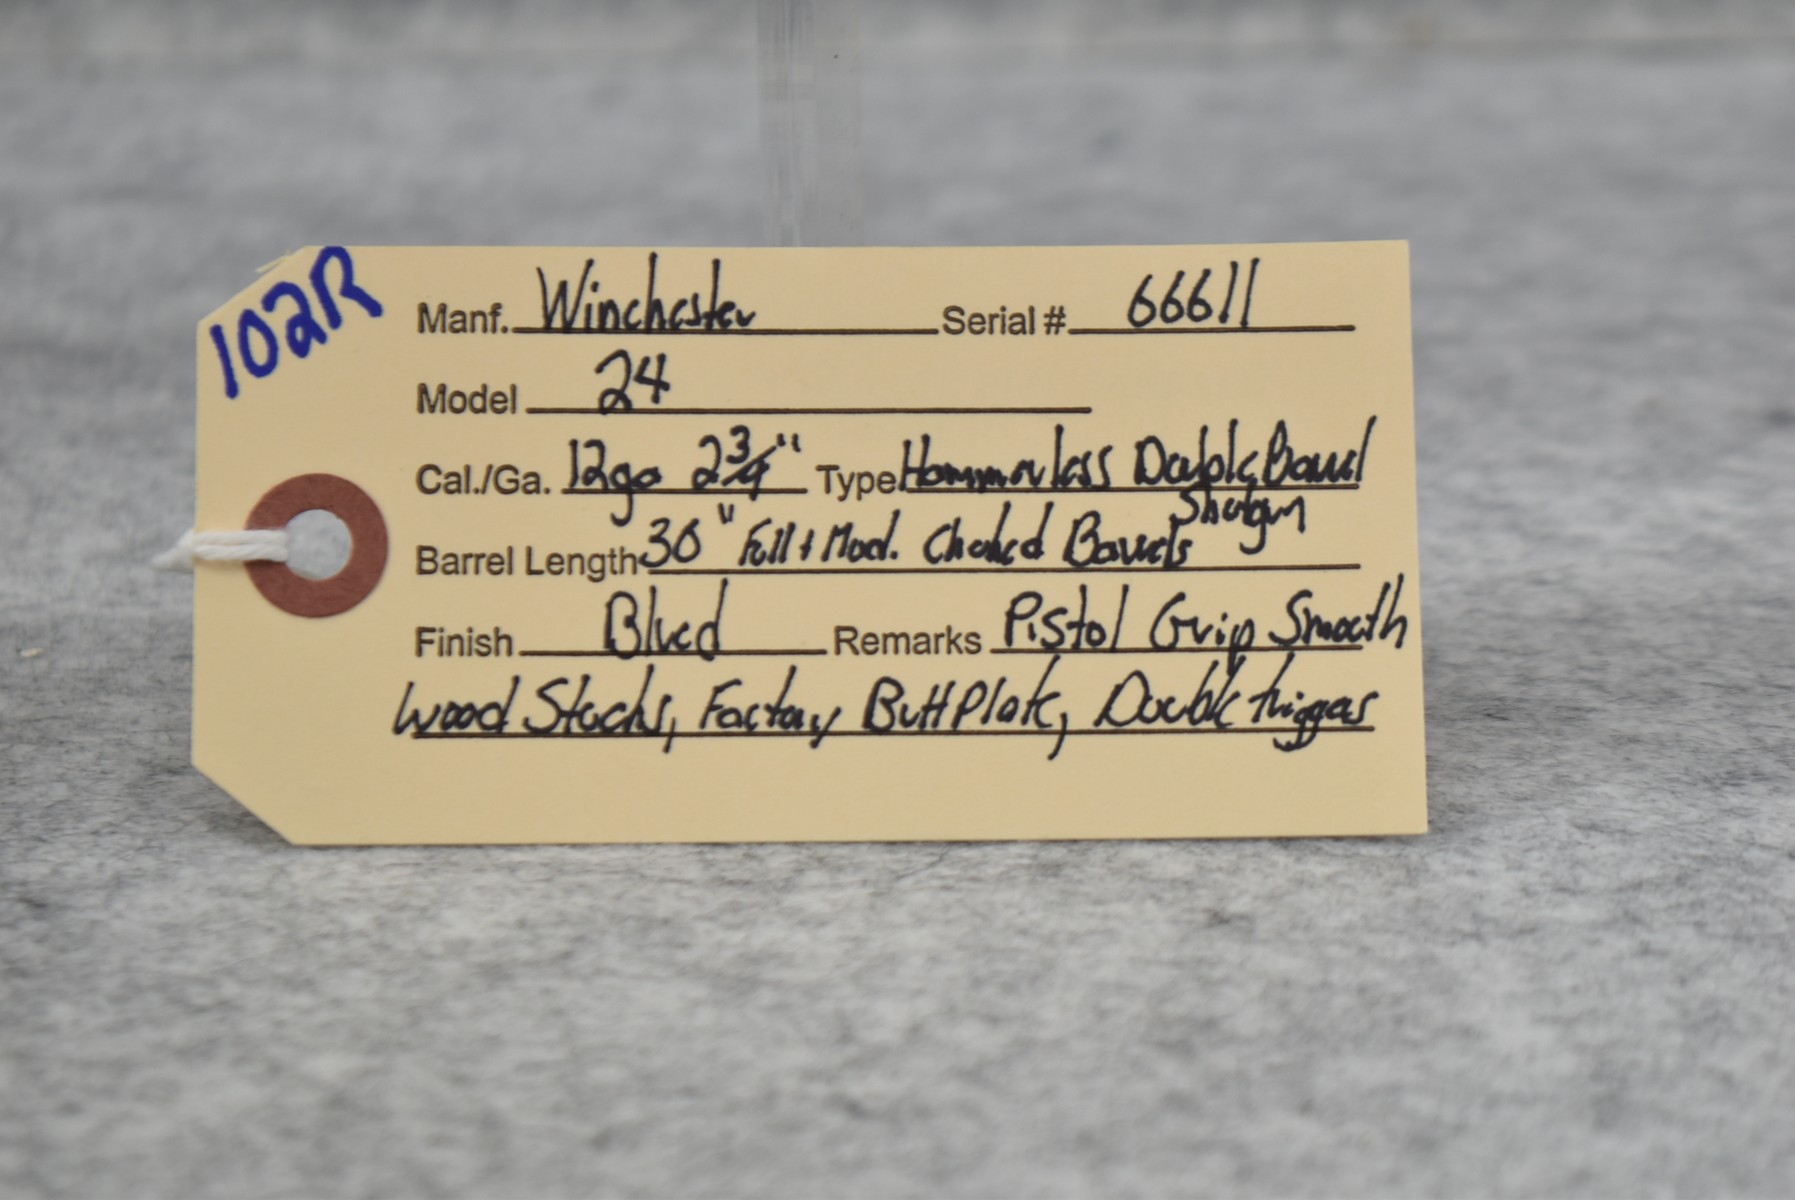 102R
Manf. Winchester Serial # 66611
Model 24
Cal./Ga. 12ga 2 3/4" Type Hammerless Double Barrel
Shotgun
Barrel Length 30" Full + Mod. Choked Barrels
Finish Blued Remarks Pistol Grip Smooth
Wood Stocks, Factory Butt Plate, Double triggers